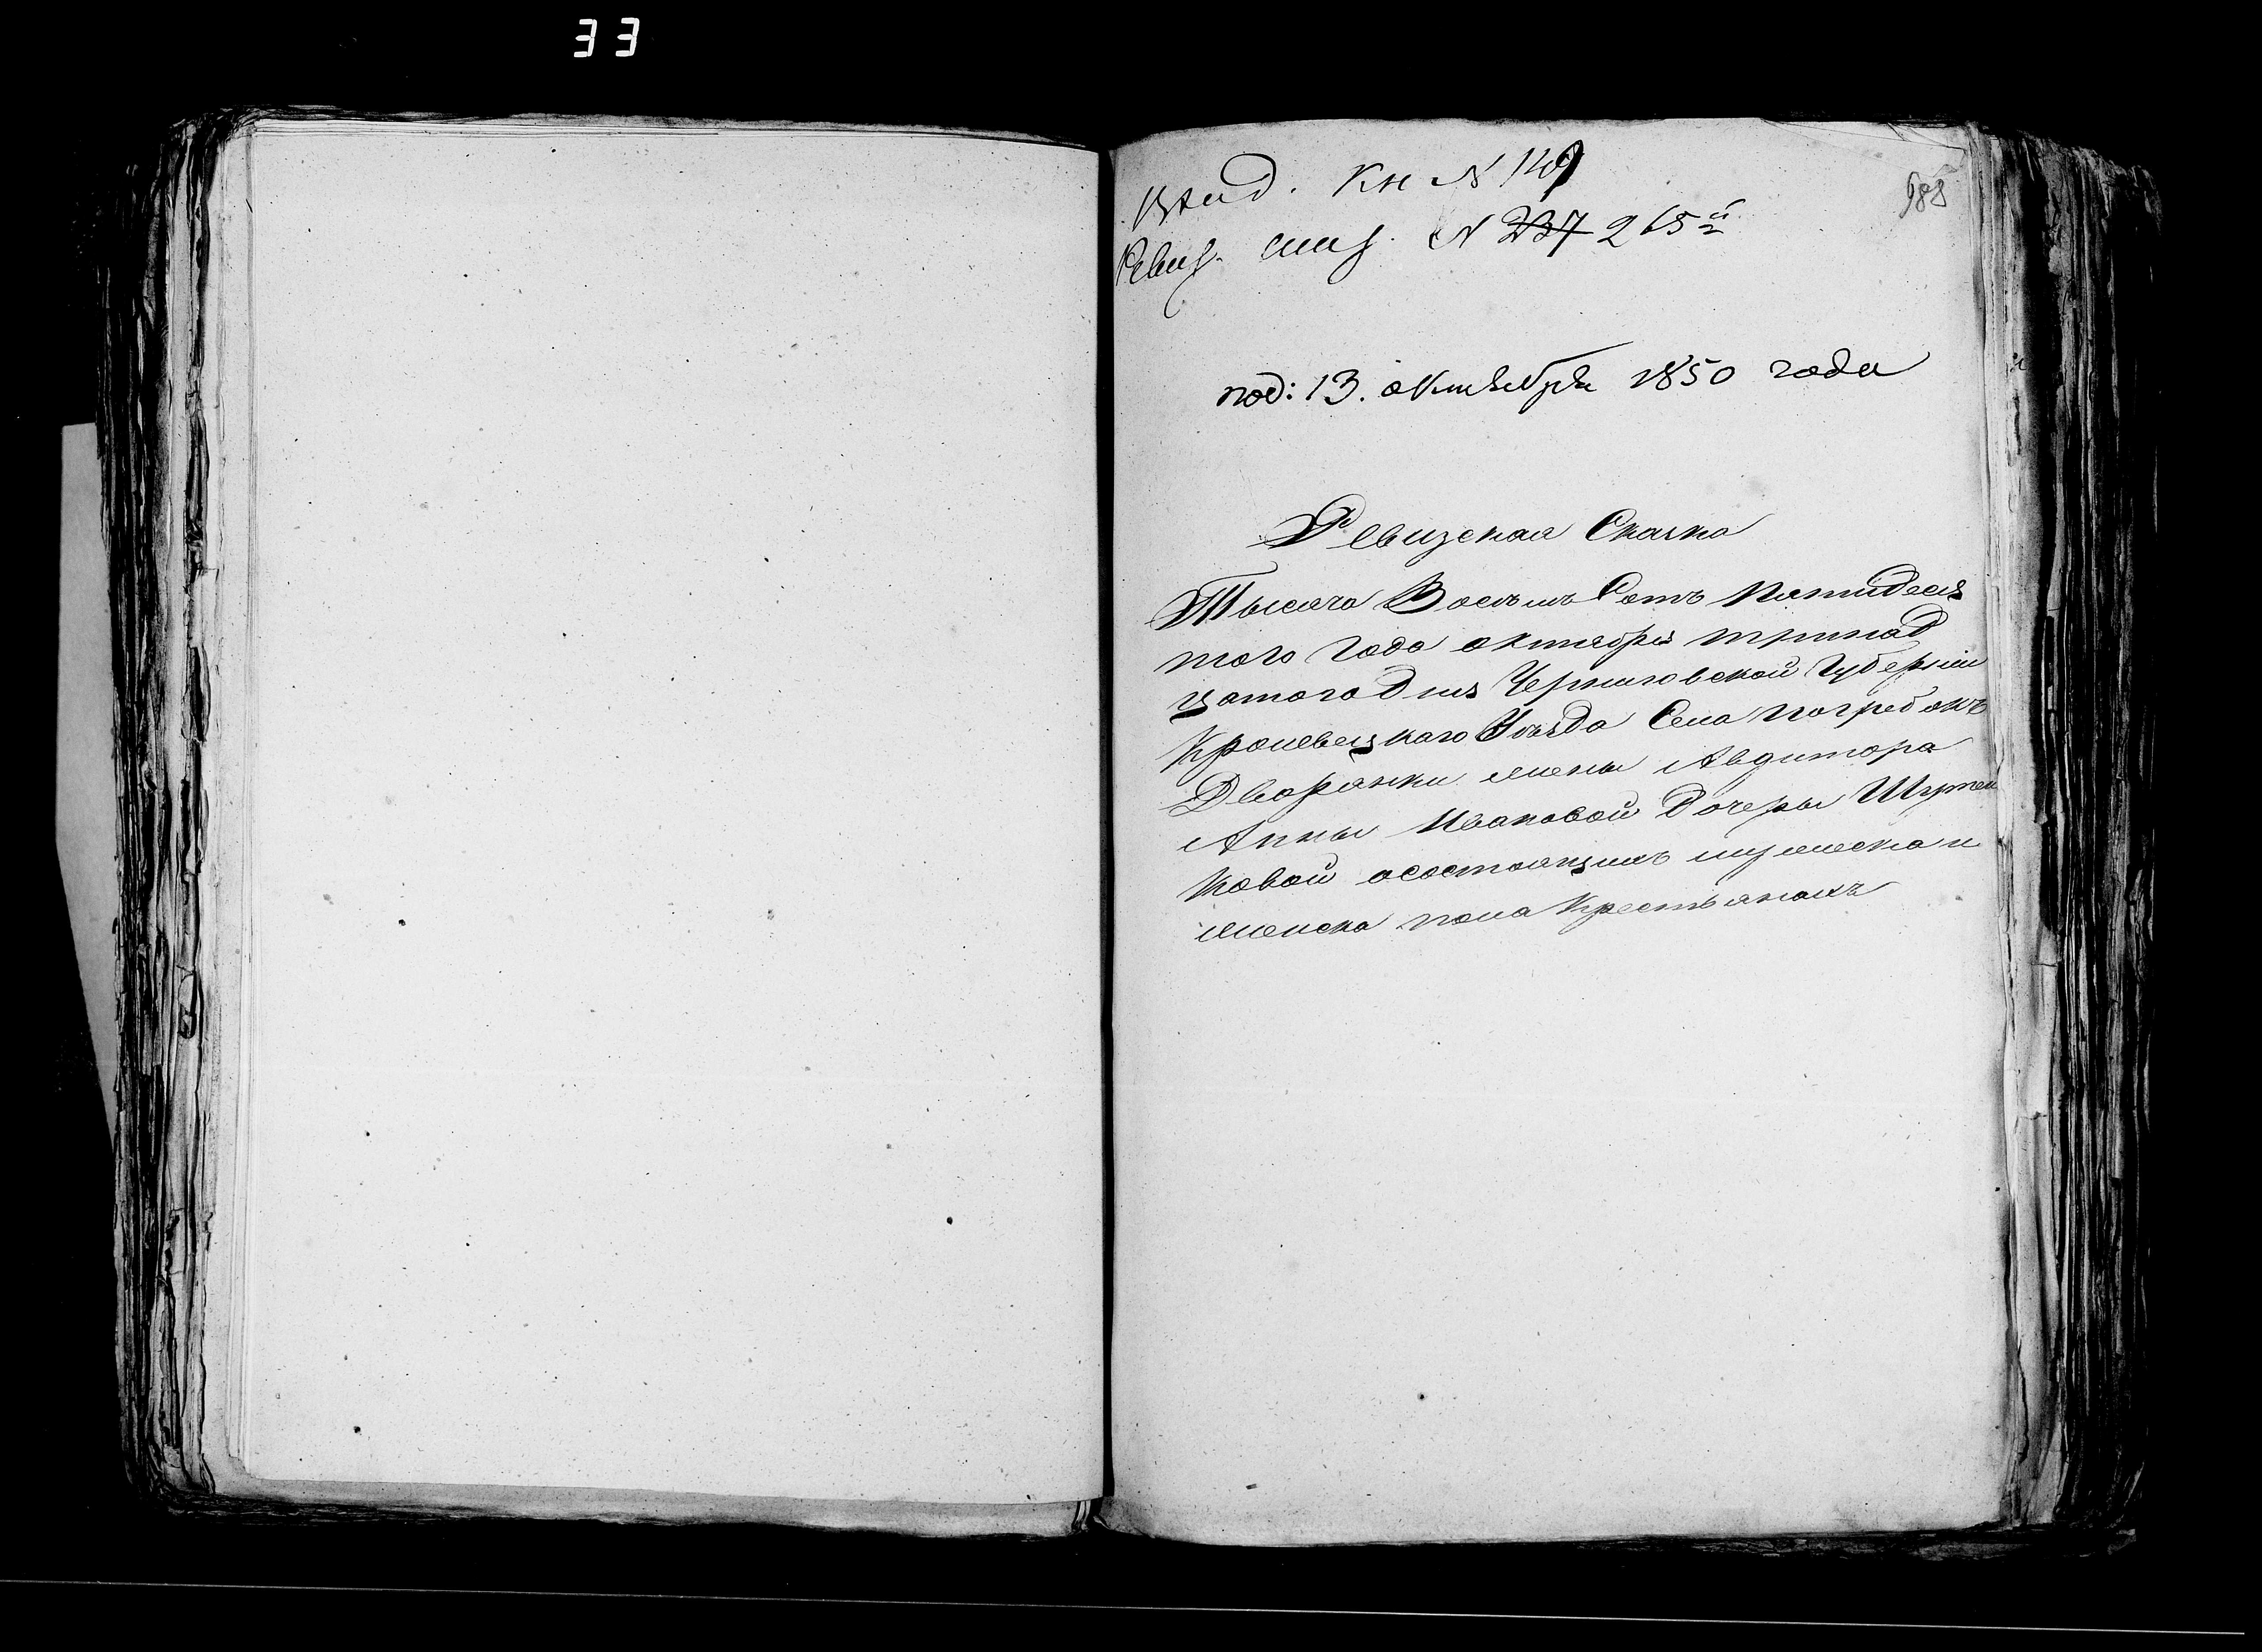 33
688
Кн № 149
Ревиз. № 237 265й
под: 13. октября 1850 года
Ревизская Сказка
Тысяча Восемь Сотъ пятидеся
того года октября тринад
цатого дня Черниговской Губерніи
Кролевецкаго Уѣзда Села погребокъ
Дворянки жены Авдитора
Анны Ивановой дочеры
ковой осостоящихъ мужеска и
женска пола крестьянахъ